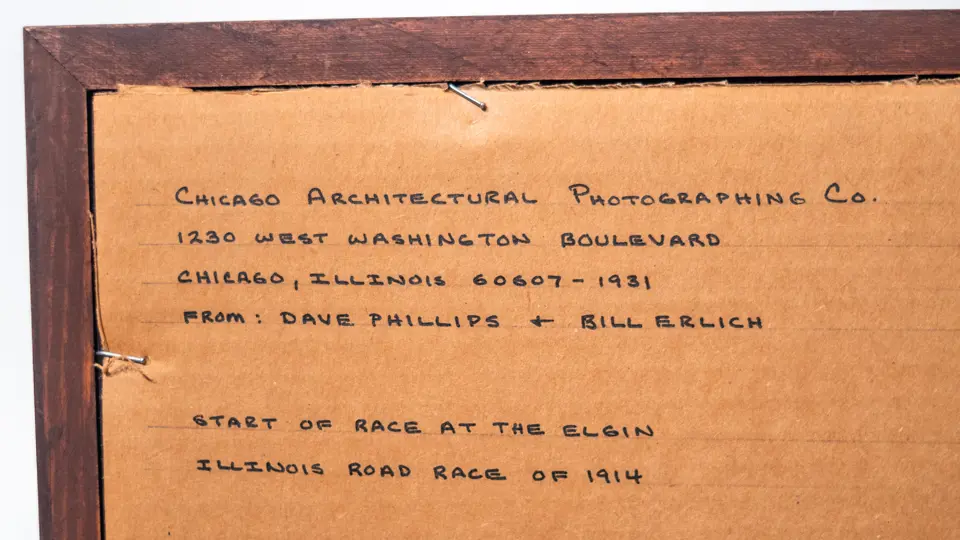 CHICAGO ARCHITECTURAL PHOTOGRAPHING CO.
1230 WEST WASHINGTON BOULEVARD
CHICAGO, ILLINOIS 60607-1931
FROM: DAVE PHILLIPS + BILL ERLICH
START OF RACE AT THE ELGIN
ILLINOIS ROAD RACE OF 1914